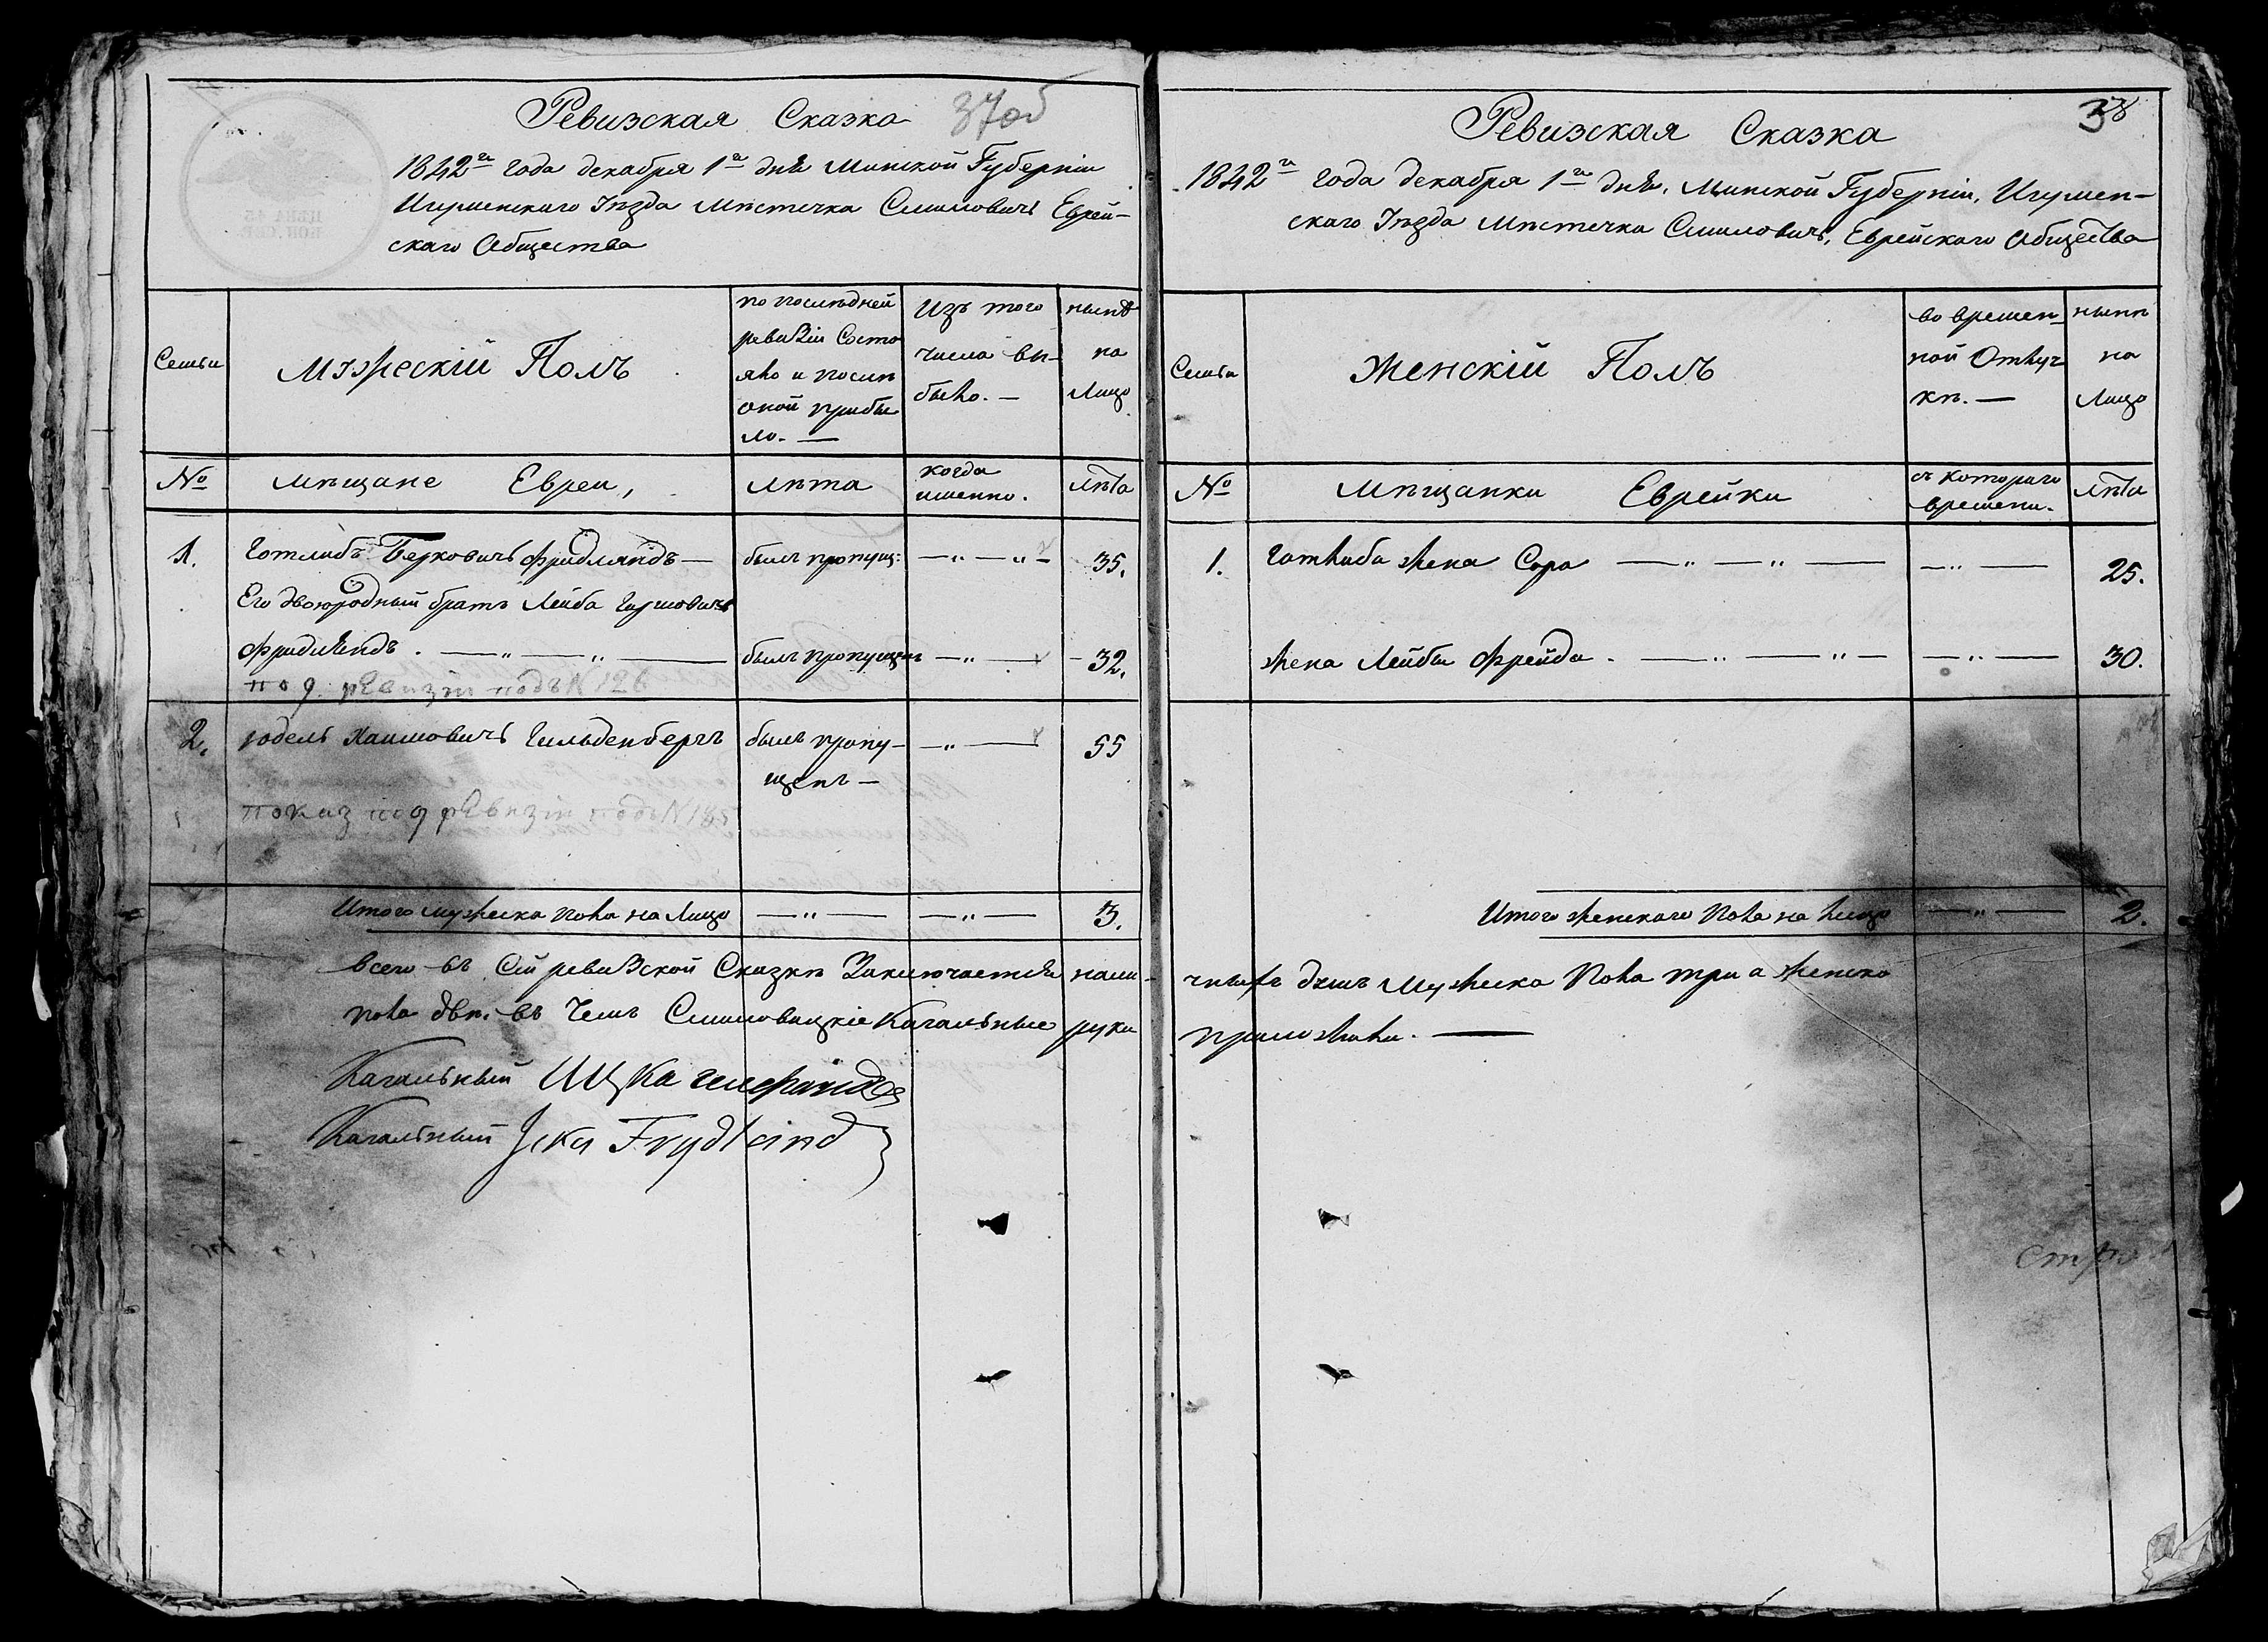 Ревизская Сказка 37об
1842го года декабря 1го дня Минской Губерніи
Игуменскаго Уѣзда Мѣстечка Смиловичъ Еврей-
скаго Общества
Семьи
Мужескій Полъ
по послѣдней
ревизіи Состо
яло и послѣ
оной прибы
ло. —
Изъ того
числа вы-
было. —
нынѣ
на
Лицо
№ мѣщане Евреи, лѣта
когда
именно.
лѣта
1. Готлибъ Берковичъ Фридляндъ — былъ пропущ: — „ — „ — 35.
Его двоюродный братъ Лейба Гиршовичъ
Фридляндъ. — „ — „ — былъ пропущенъ — „ — 32.
по 9 рЕвизіи подъ N 126
2. Юдель Хаимовичъ Гильденбергъ былъ пропу- — „ — 55
щенъ —
показ по 9 рЕвизіи подъ N
Итого мужеска пола на Лицо — „ — — „ — 3.
Всего въ Сей ревизской Сказкѣ Заключается нали-
пола двѣ. въ Чемъ Смиловицкіе Кагальные руки
Кагальный ИЦка
Кагальный Icka Frydland
38
Ревизская Сказка
1842го года декабря 1го дня, Минской Губерніи, Игумен-
скаго Уѣзда Мѣстечка Смиловичъ, Еврейскаго Общества
Семьи
Женскій Полъ
во времен-
ной Отлуч
кѣ. —
нынѣ
на
Лицо
№ Мѣщанки Еврейки
съ котораго
времени.
лѣта
1. Готлиба жена Сора — „ — „ — — „ — 25.
жена Лейбы Фрейда. — „ — „ — — „ — 30.
Итого женскаго пола на лицо — „ — 2.
чныхъ душъ Мужеска Пола три а женска
приложили. —